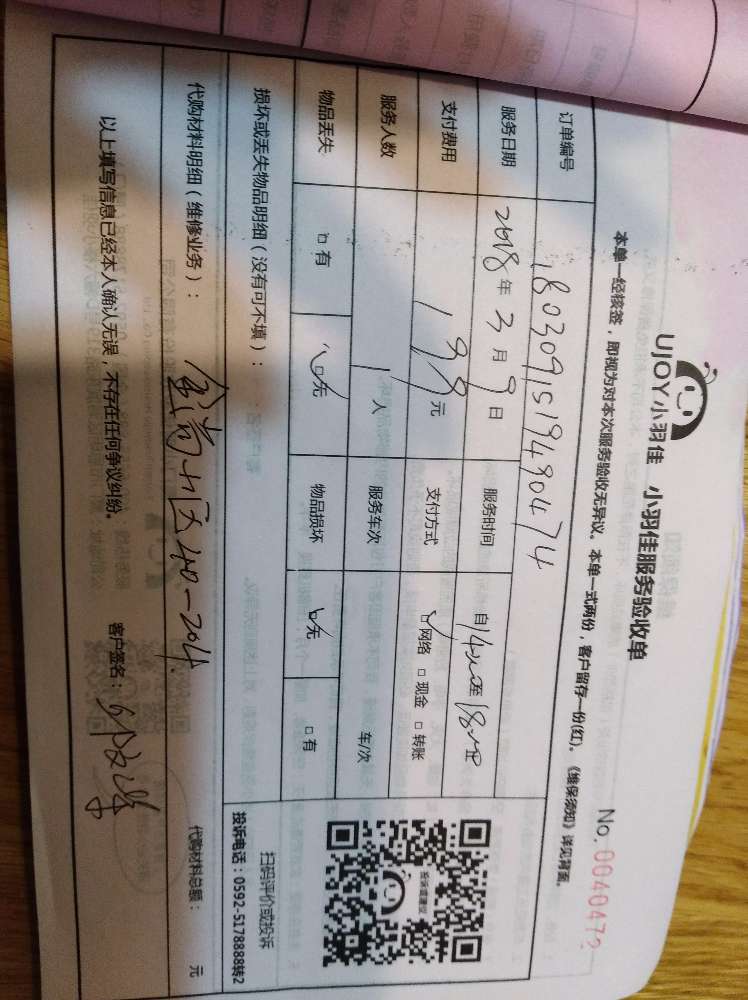 UJOY小羽佳 小羽佳服务验收单
No. 0040472
本单一经核签，即视为对本次服务验收无异议。本单一式两份，客户留存一份(红)。《维保须知》详见背面。
订单编号 1803091519490474
服务日期 2018年3月9日 服务时间 自14:00至18:00
支付费用 199元 支付方式 网络 现金 转账
服务人数 1人 服务车次 车/次
物品丢失 有 无 物品损坏 无 有
投诉或建议
扫码评价或投诉
投诉电话：0592-5178888转2
损坏或丢失物品明细（没有可不填）：
代购材料明细（维修业务）： 代购材料总额： 元
金尚小区40-204
以上填写信息已经本人确认无误，不存在任何争议纠纷。 客户签名：